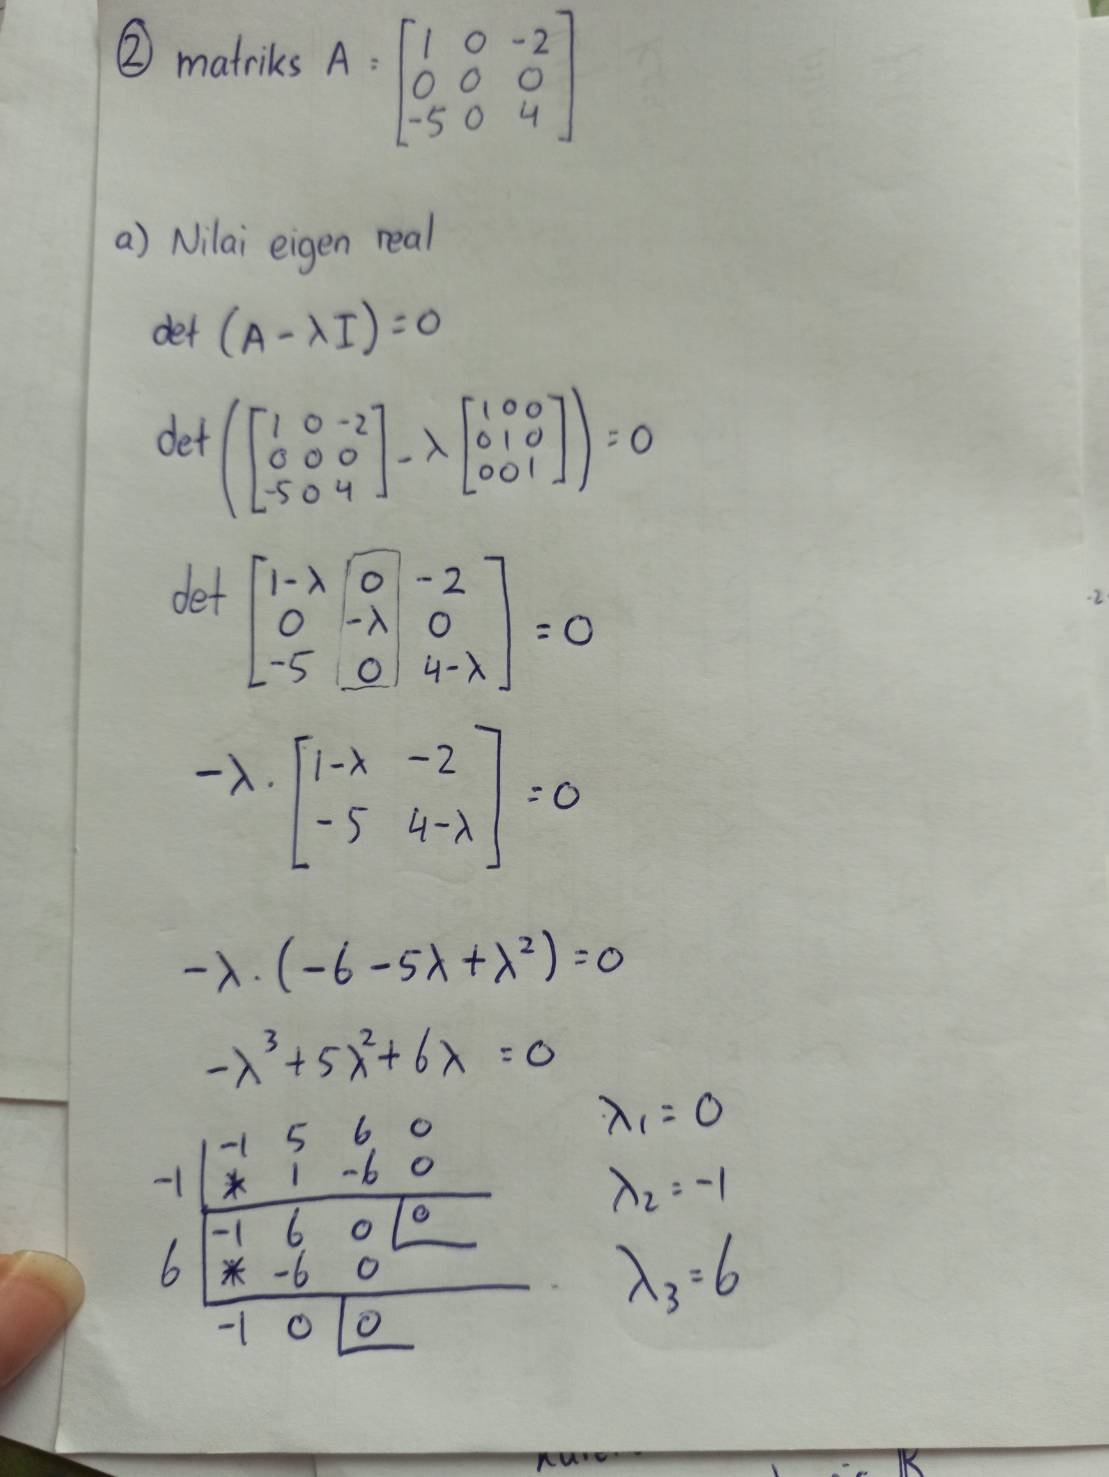 ② matriks A = [1 0 -2
0 0 0
-5 0 4]
a) Nilai eigen real
det (A - λI) = 0
det ([1 0 -2
0 0 0
-5 0 4] - λ [1 0 0
0 1 0
0 0 1]) = 0
det [1-λ 0 -2
0 -λ 0
-5 0 4-λ] = 0
-λ . [1-λ -2
-5 4-λ] = 0
-λ . (-6 - 5λ + λ²) = 0
-λ³ + 5λ² + 6λ = 0
-1 5 6 0
-1 * 1 -6 0
-1 6 0 0
6 * -6 0
-1 0 0
λ₁ = 0
λ₂ = -1
λ₃ = 6
-2